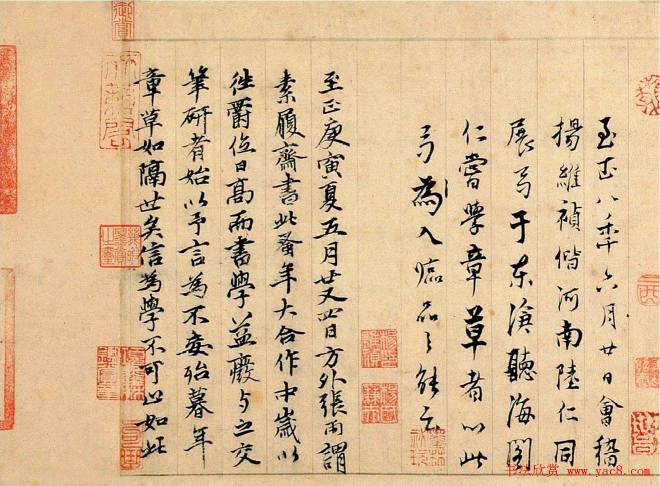 至正八年六月廿日會稽
楊維禎偕河南陸仁同
展写于东滄聽海閣
仁嘗學章草者以此
弓為入臨品之能云
至正庚寅夏五月廿又四日方外張雨謂
素履齋書此蚤年大合作中歲以
往爵位日高而書學益廢与之交
筆研者始以予言為不妄殆暮年
章草如隔世矣信為學不可止如此
书法欣赏
www.yac8.com